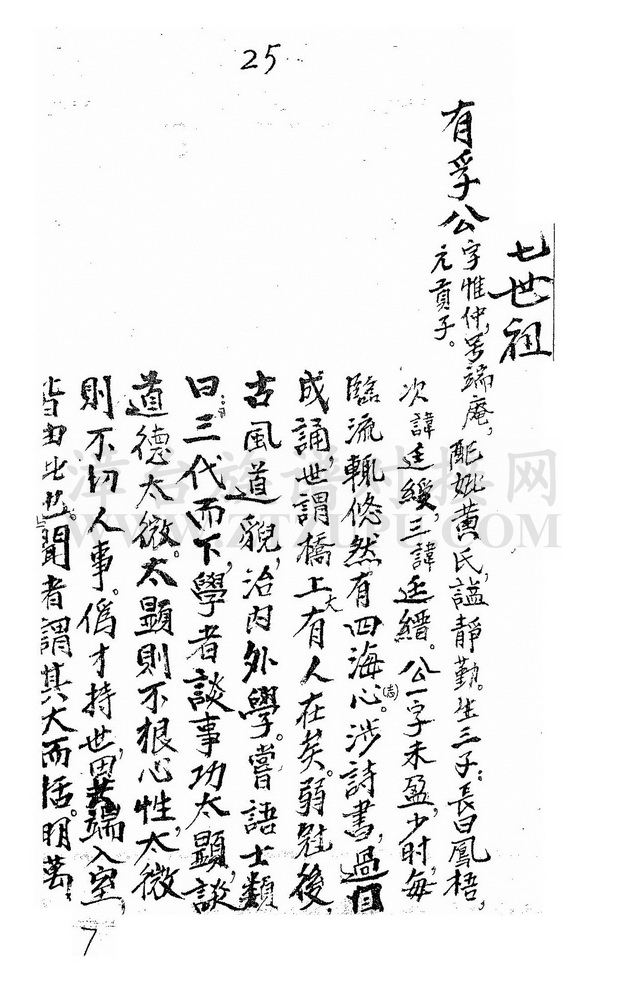 25
七世祖
有孚公字惟仲，号端庵，配妣黄氏，諡靜勤。生三子：長曰鳳梧，
元貢子。
次諱廷綬，三諱廷縉。公一字未盈，少时每
臨流輒悠然有四海心(志)。涉詩書，過目
成誦，世謂橋上有大人在矣。弱冠後，
古風道貌，治内外學。嘗語士類
曰：三代而下，學者談事功太顯，談
道德太微。太顯則不根心性，太微
則不切人事。偽才持世，異端入室，
皆由此也。聞者謂其大而括。明萬
7
漳台族谱对接网
WWW.ZTZUPU.COM